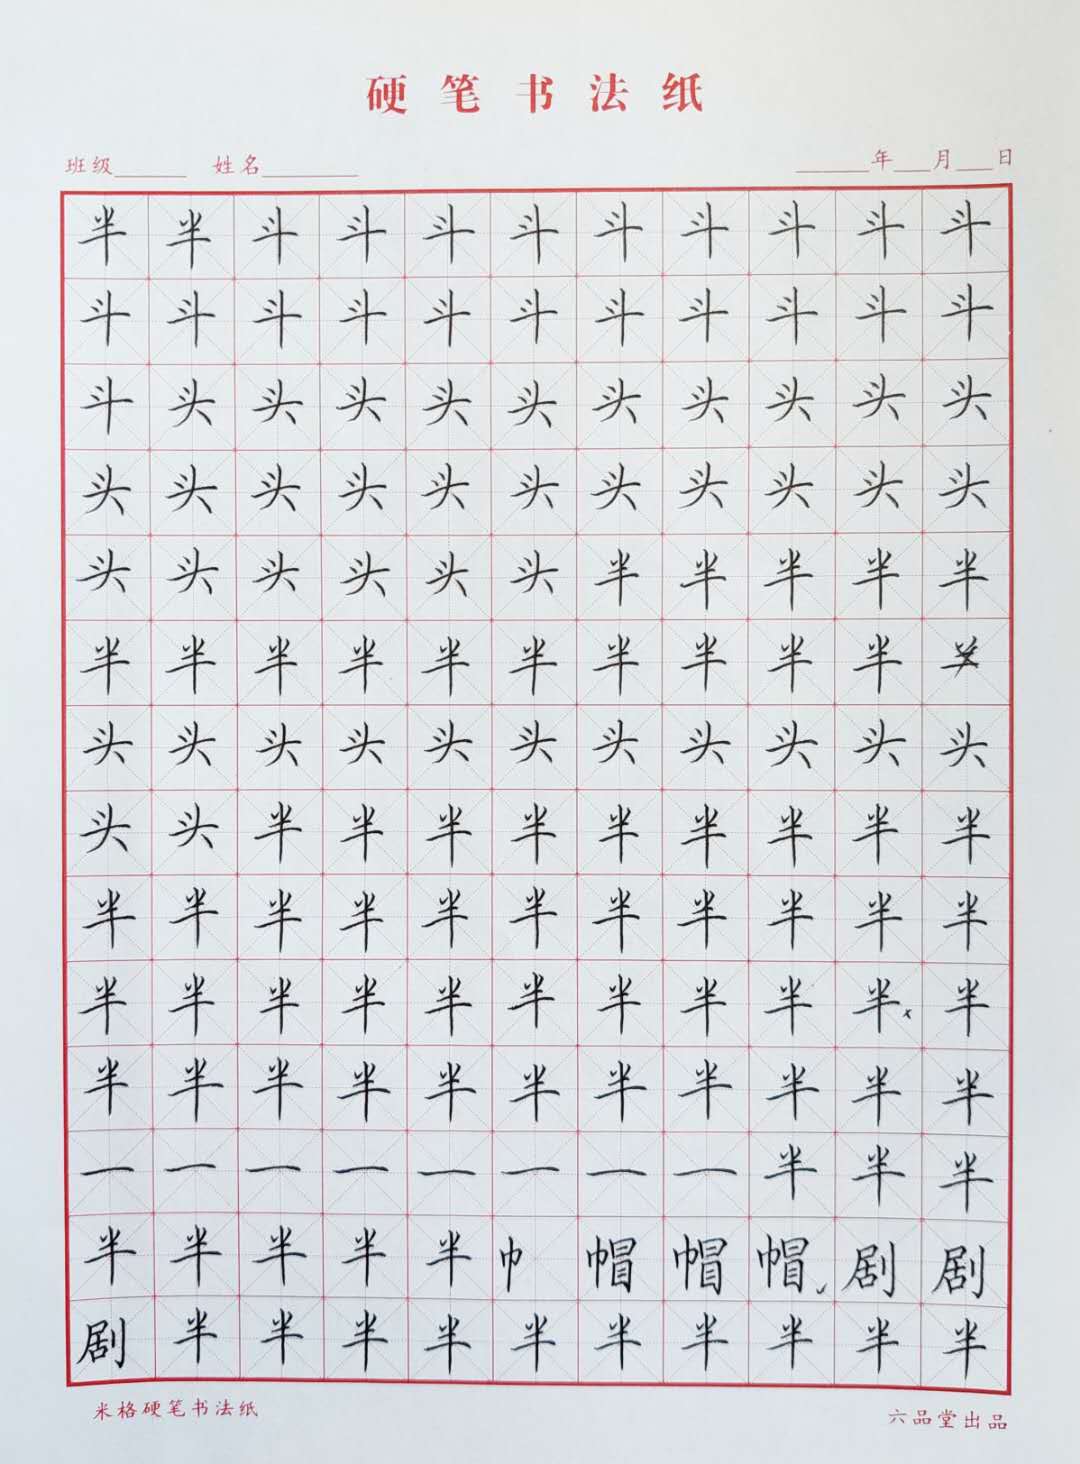 硬笔书法纸
班级 姓名 年 月 日
半半斗斗斗斗斗斗斗斗斗
斗斗斗斗斗斗斗斗斗斗斗
斗头头头头头头头头头头
头头头头头头头头头头头
头头头头头头半半半半半
半半半半半半半半半半
头头头头头头头头头头头
头头半半半半半半半半半
半半半半半半半半半半半
半半半半半半半半半半半
半半半半半半半半半半半
一一一一一一一一半半半
半半半半半巾帽帽帽剧剧
剧半半半半半半半半半半
米格硬笔书法纸 六品堂出品